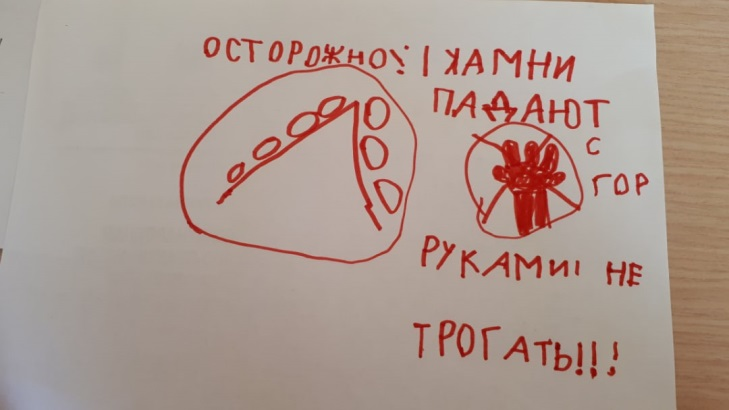 ОСТОРОЖНО! КАМНИ
ПАДАЮТ
С
ГОР
РУКАМИ! НЕ
ТРОГАТЬ!!!